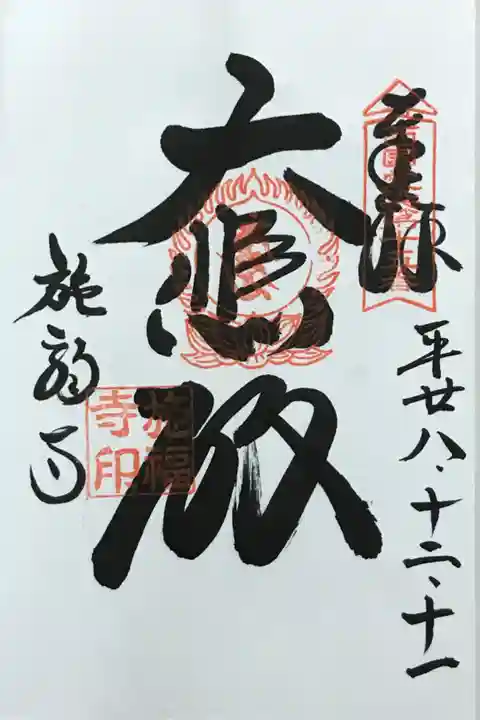 奉拝
平廿八、十二、十一
大悲殿
施福寺
施福寺印